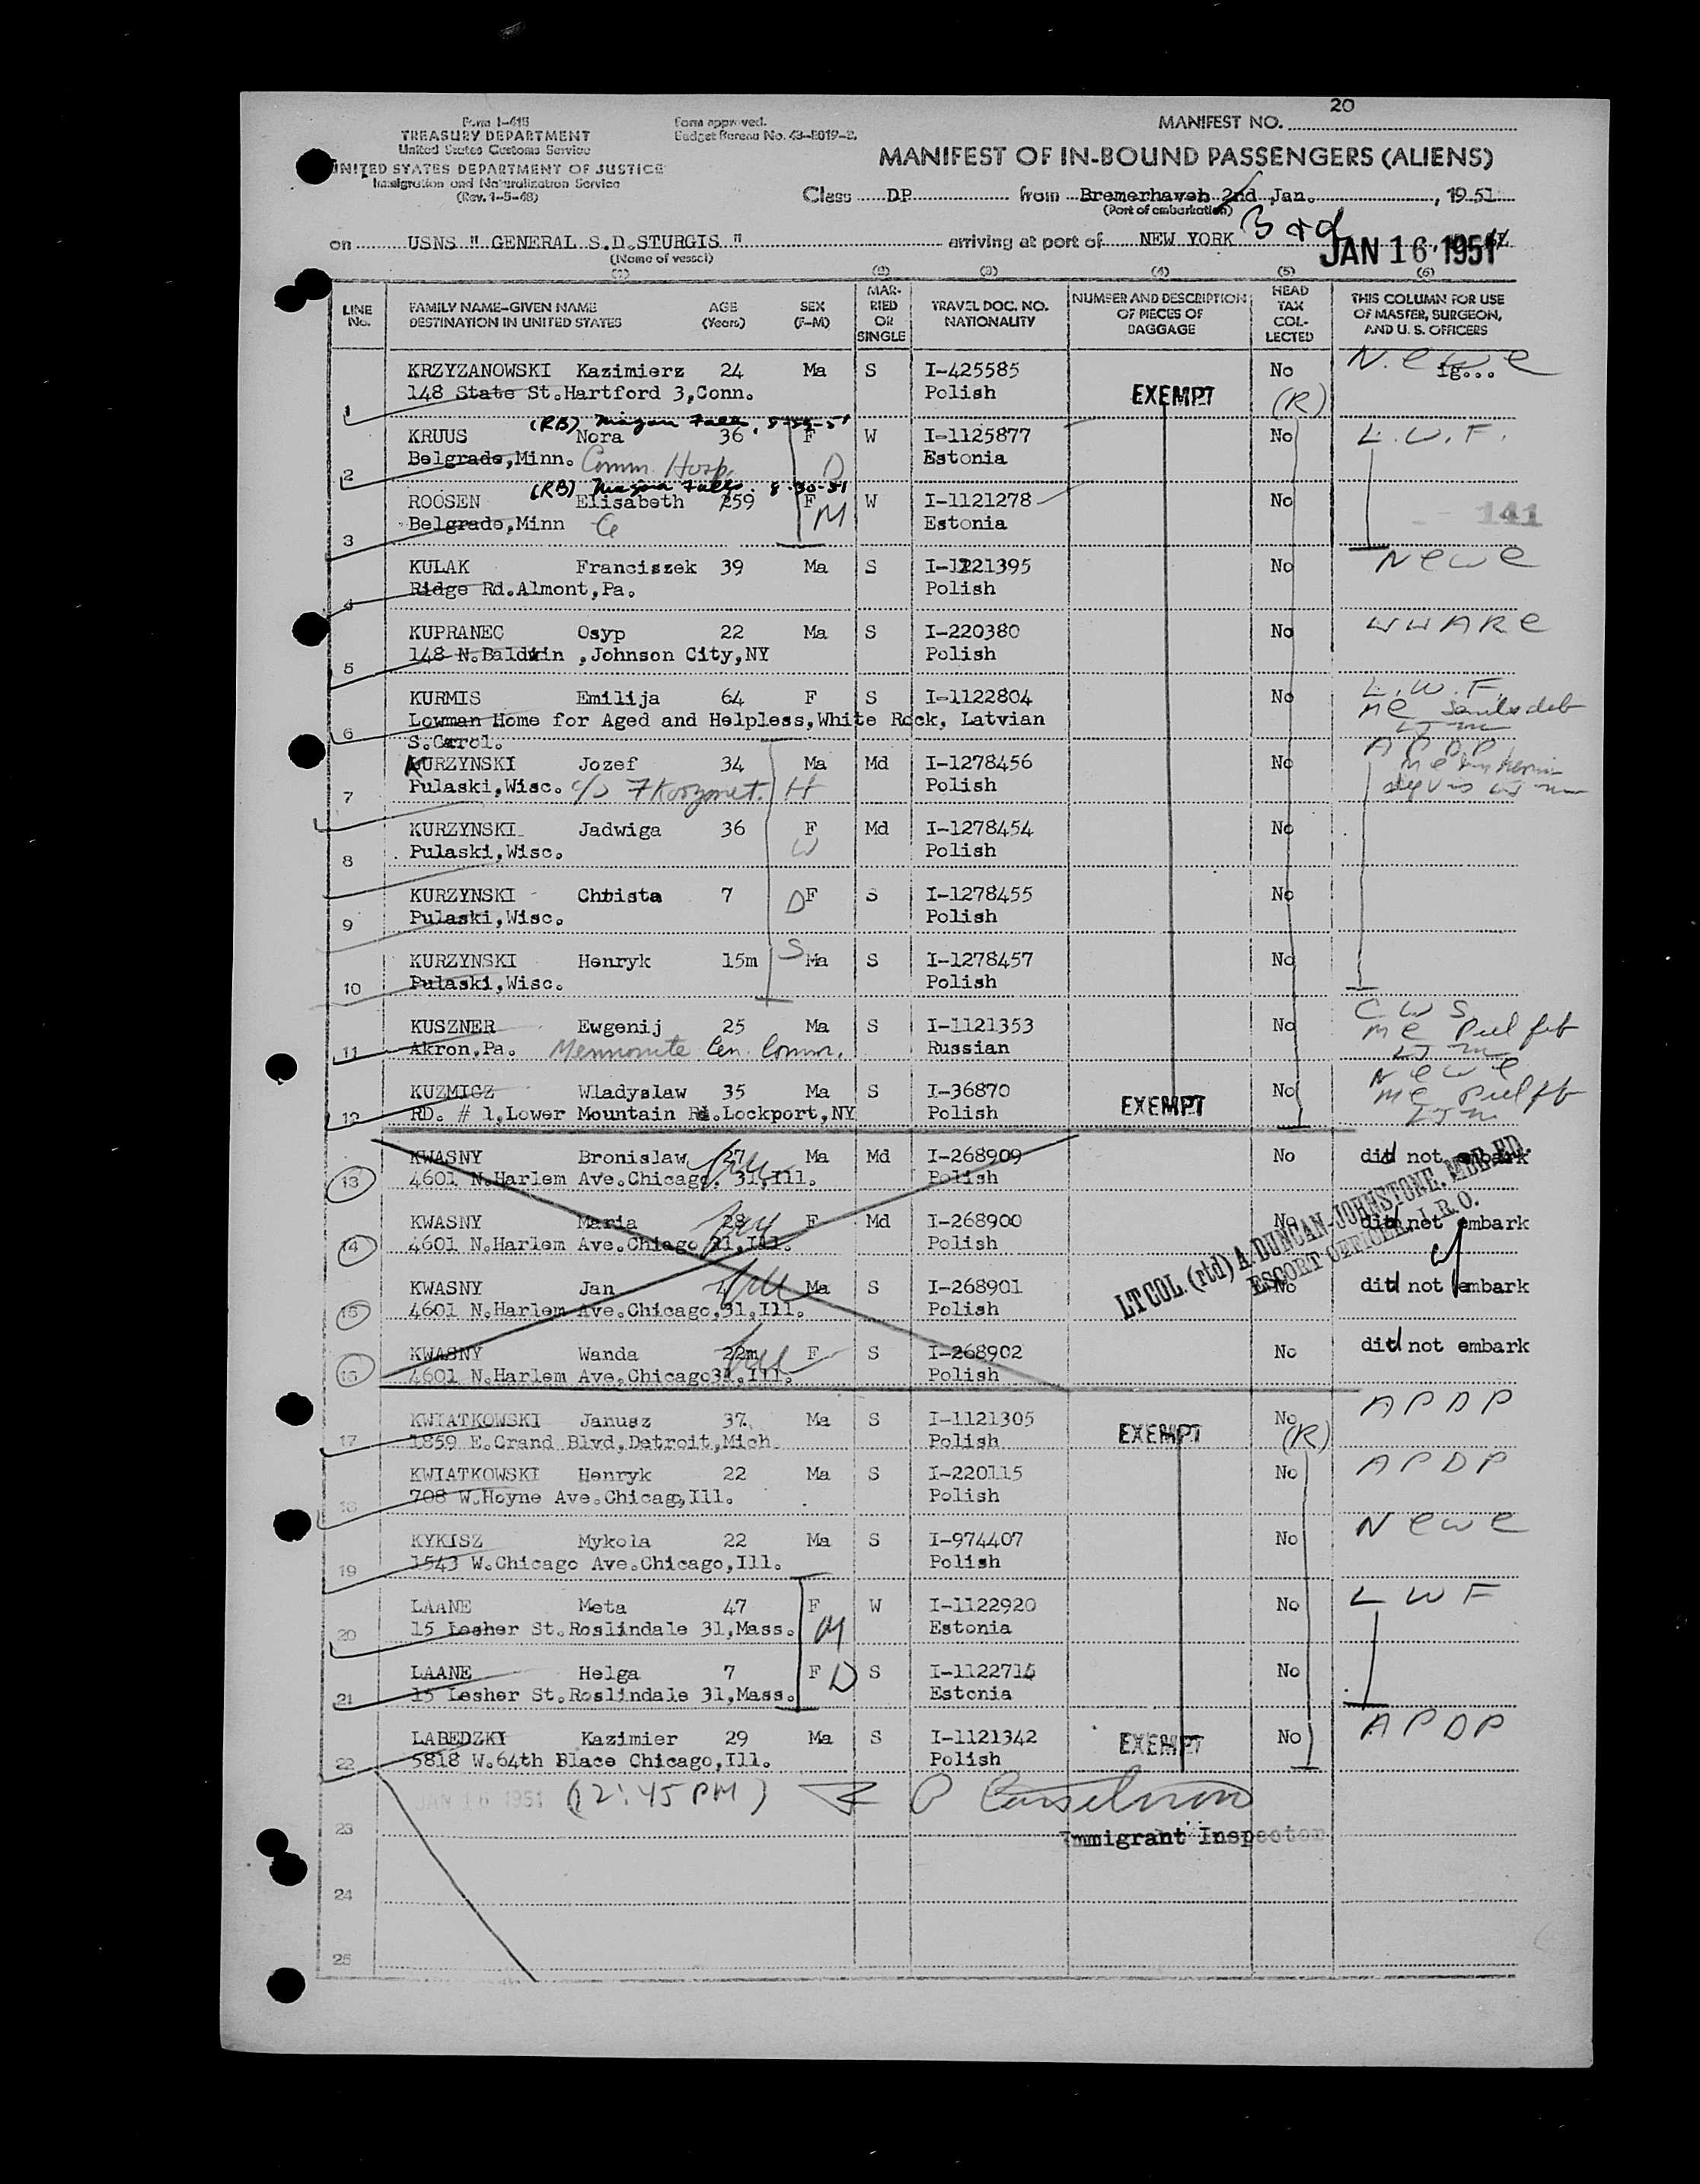 20
Form I-418
TREASURY DEPARTMENT
United States Customs Service
UNITED STATES DEPARTMENT OF JUSTICE
Immigration and Naturalization Service
(Rev. 1-5-48)
Form approved.
Budget Bureau No. 43-R019-2.
MANIFEST NO.
MANIFEST OF IN-BOUND PASSENGERS (ALIENS)
Class DP from Bremerhaven 2nd Jan. , 1951
(Port of embarkation)
3rd
on USNS " GENERAL S.D.STURGIS " arriving at port of NEW YORK JAN 16 1951
(Name of vessel)
(1) (2) (3) (4) (5) (6)
LINE No. FAMILY NAME-GIVEN NAME DESTINATION IN UNITED STATES AGE (Years) SEX (F-M) MARRIED OR SINGLE TRAVEL DOC. NO. NATIONALITY NUMBER AND DESCRIPTION OF PIECES OF BAGGAGE HEAD TAX COLLECTED THIS COLUMN FOR USE OF MASTER, SURGEON, AND U. S. OFFICERS
KRZYZANOWSKI Kazimierz 24 Ma S I-425585 No N.C.W.C
1 148 State St.Hartford 3,Conn. Polish EXEMPT (R)
(RB) Niagara Falls,
KRUUS Nora 36 F W I-1125877 No L.W.F.
2 Belgrade,Minn. Comm. Hosp. D Estonia
(RB) Niagara Falls. 8-30-51
ROOSEN Elisabeth 59 F W I-1121278 No
3 Belgrade,Minn M Estonia 141
KULAK Franciszek 39 Ma S I-1221395 No NCWC
4 Ridge Rd.Almont,Pa. Polish
KUPRANEC Osyp 22 Ma S I-220380 No UUARC
5 148 N.Baldwin ,Johnson City,NY Polish
KURMIS Emilija 64 F S I-1122804 No L.W.F.
6 Lowman Home for Aged and Helpless,White Rock, Latvian
S.Carol.
KURZYNSKI Jozef 34 Ma Md I-1278456 No APDP
7 Pulaski,Wisc. H Polish
KURZYNSKI Jadwiga 36 F Md I-1278454 No
8 Pulaski,Wisc. W Polish
KURZYNSKI Christa 7 D F S I-1278455 No
9 Pulaski,Wisc. Polish
KURZYNSKI Henryk 15m S Ma S I-1278457 No
10 Pulaski,Wisc. Polish
KUSZNER Ewgenij 25 Ma S I-1121353 No CWS
11 Akron,Pa. Mennonite Cen. Comm. Russian
KUZMICZ Wladyslaw 35 Ma S I-36870 No NCWC
12 RD. # 1,Lower Mountain Rd.Lockport,NY Polish EXEMPT
KWASNY Bronislaw 27 Ma Md I-268909 No did not embark
13 4601 N.Harlem Ave.Chicago, 31,Ill. Polish
KWASNY Maria 28 F Md I-268900 No did not embark
14 4601 N.Harlem Ave.Chiago 31,Ill. Polish
LT COL. (rtd) A. DUNCAN-JOHNSTONE, MBE.ED.
ESCORT OFFICER I.R.O.
KWASNY Jan Ma S I-268901 No did not embark
15 4601 N.Harlem Ave.Chicago,31,Ill. Polish
KWASNY Wanda 22m F S I-268902 No did not embark
16 4601 N.Harlem Ave.Chicago31,Ill. Polish
KWIATKOWSKI Janusz 37 Ma S I-1121305 No APDP
17 1859 E.Grand Blvd,Detroit,Mich. Polish EXEMPT (R)
KWIATKOWSKI Henryk 22 Ma S I-220115 No APDP
18 708 W.Hoyne Ave.Chicag,Ill. Polish
KYKISZ Mykola 22 Ma S I-974407 No NCWC
19 1543 W.Chicago Ave.Chicago,Ill. Polish
LAANE Meta 47 F W I-1122920 No LWF
20 15 Lesher St.Roslindale 31,Mass. M Estonia
LAANE Helga 7 F D S I-1122715 No
21 15 Lesher St.Roslindale 31,Mass. Estonia
LABEDZKI Kazimier 29 Ma S I-1121342 EXEMPT No APDP
22 5818 W.64th Blace Chicago,Ill. Polish
JAN 16 1951 (12:45 PM)
23 Immigrant Inspector
24
25